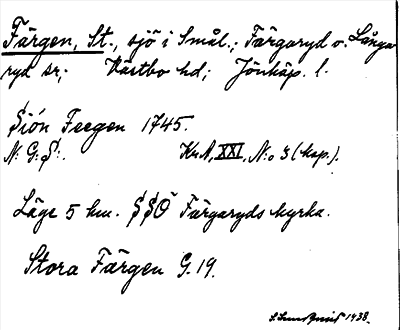 Färgen, St., sjö i Smål.; Färgaryd o. Långa-
ryd sr; Västbo hd; Jönköp. l.
Siön Feegen 1745.
N: G: S:. KrA, XXI, N:o 3 (kap.).
Läge 5 km. SSÖ Färgaryds kyrka.
Stora Färgen G. 19.
1938